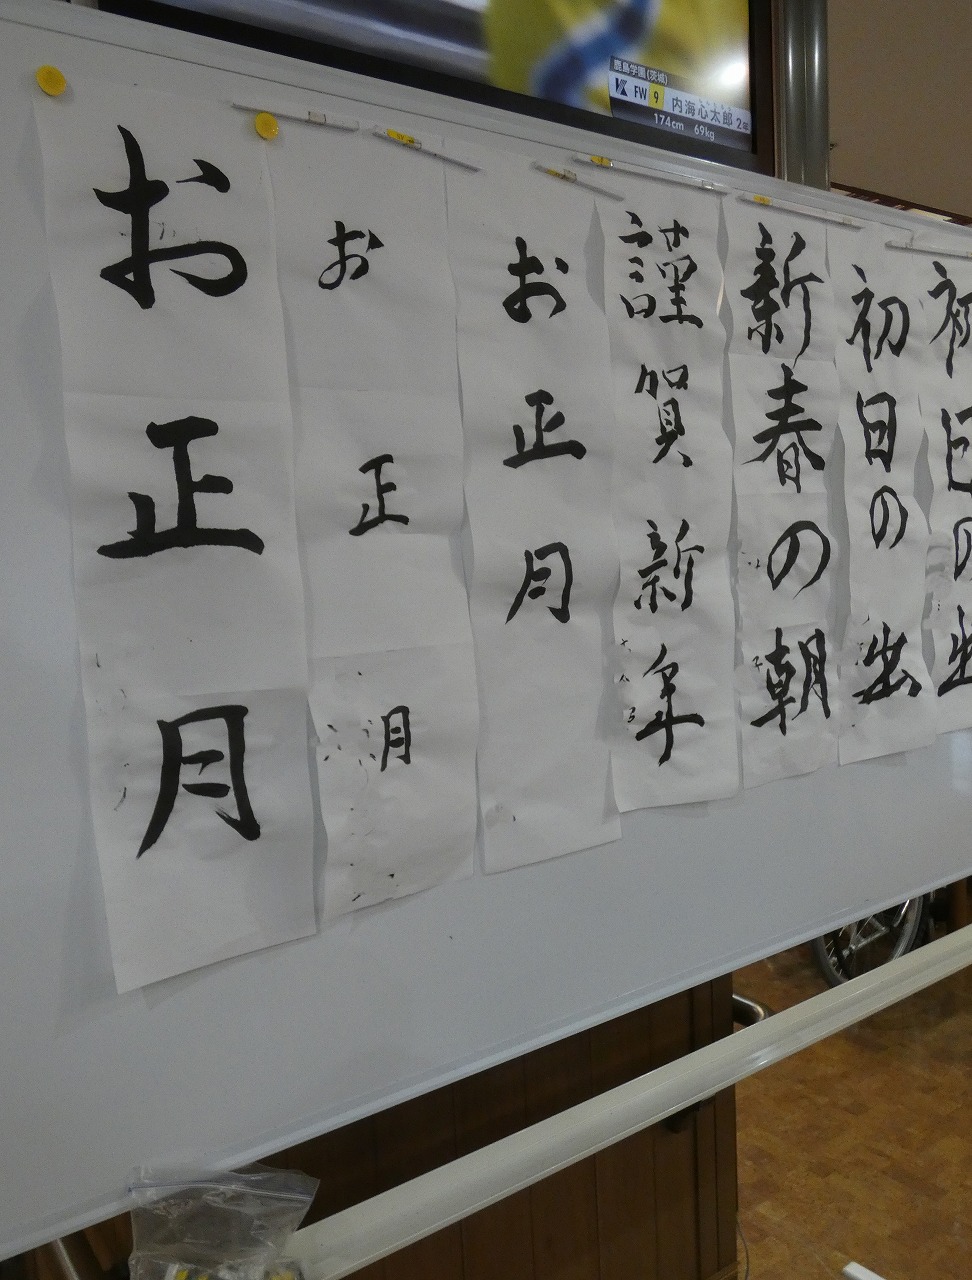 鹿島学園(茨城)
FW 9 内海心太郎 2年
174cm 69kg
お正月
お正月
お正月
謹賀新年
新春の朝
初日の出
初日の出